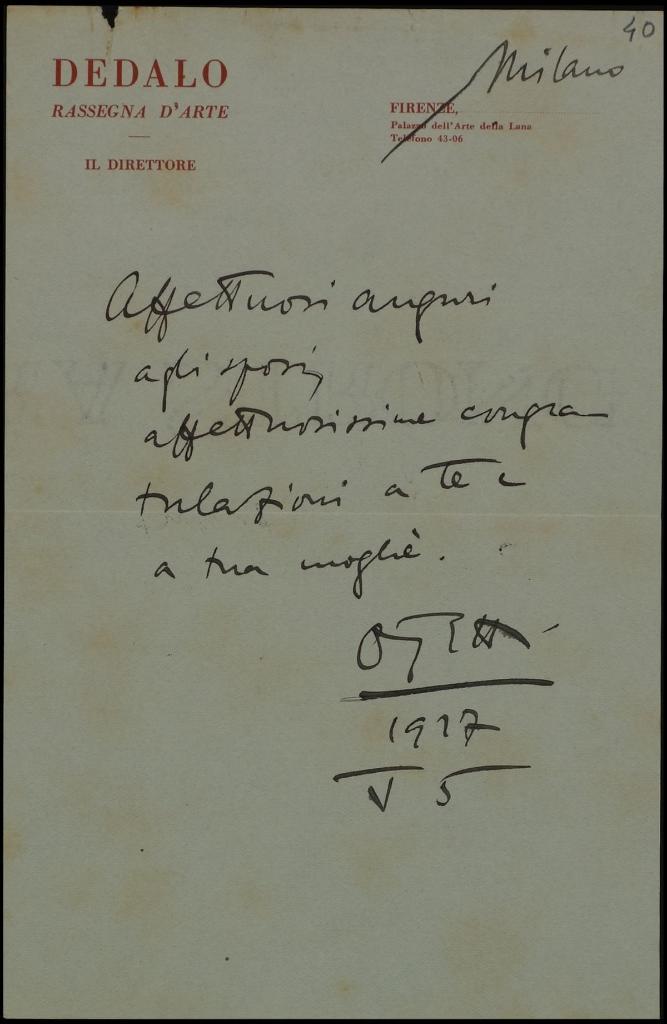 40
DEDALO
RASSEGNA D'ARTE
IL DIRETTORE
Milano
FIRENZE,
Palazzo dell'Arte della Lana
Telefono 43-06
Affettuosi auguri
agli sposi,
affettuosissime congra
tulazioni a te e
a tua moglie.
Ojetti
1927
V 5